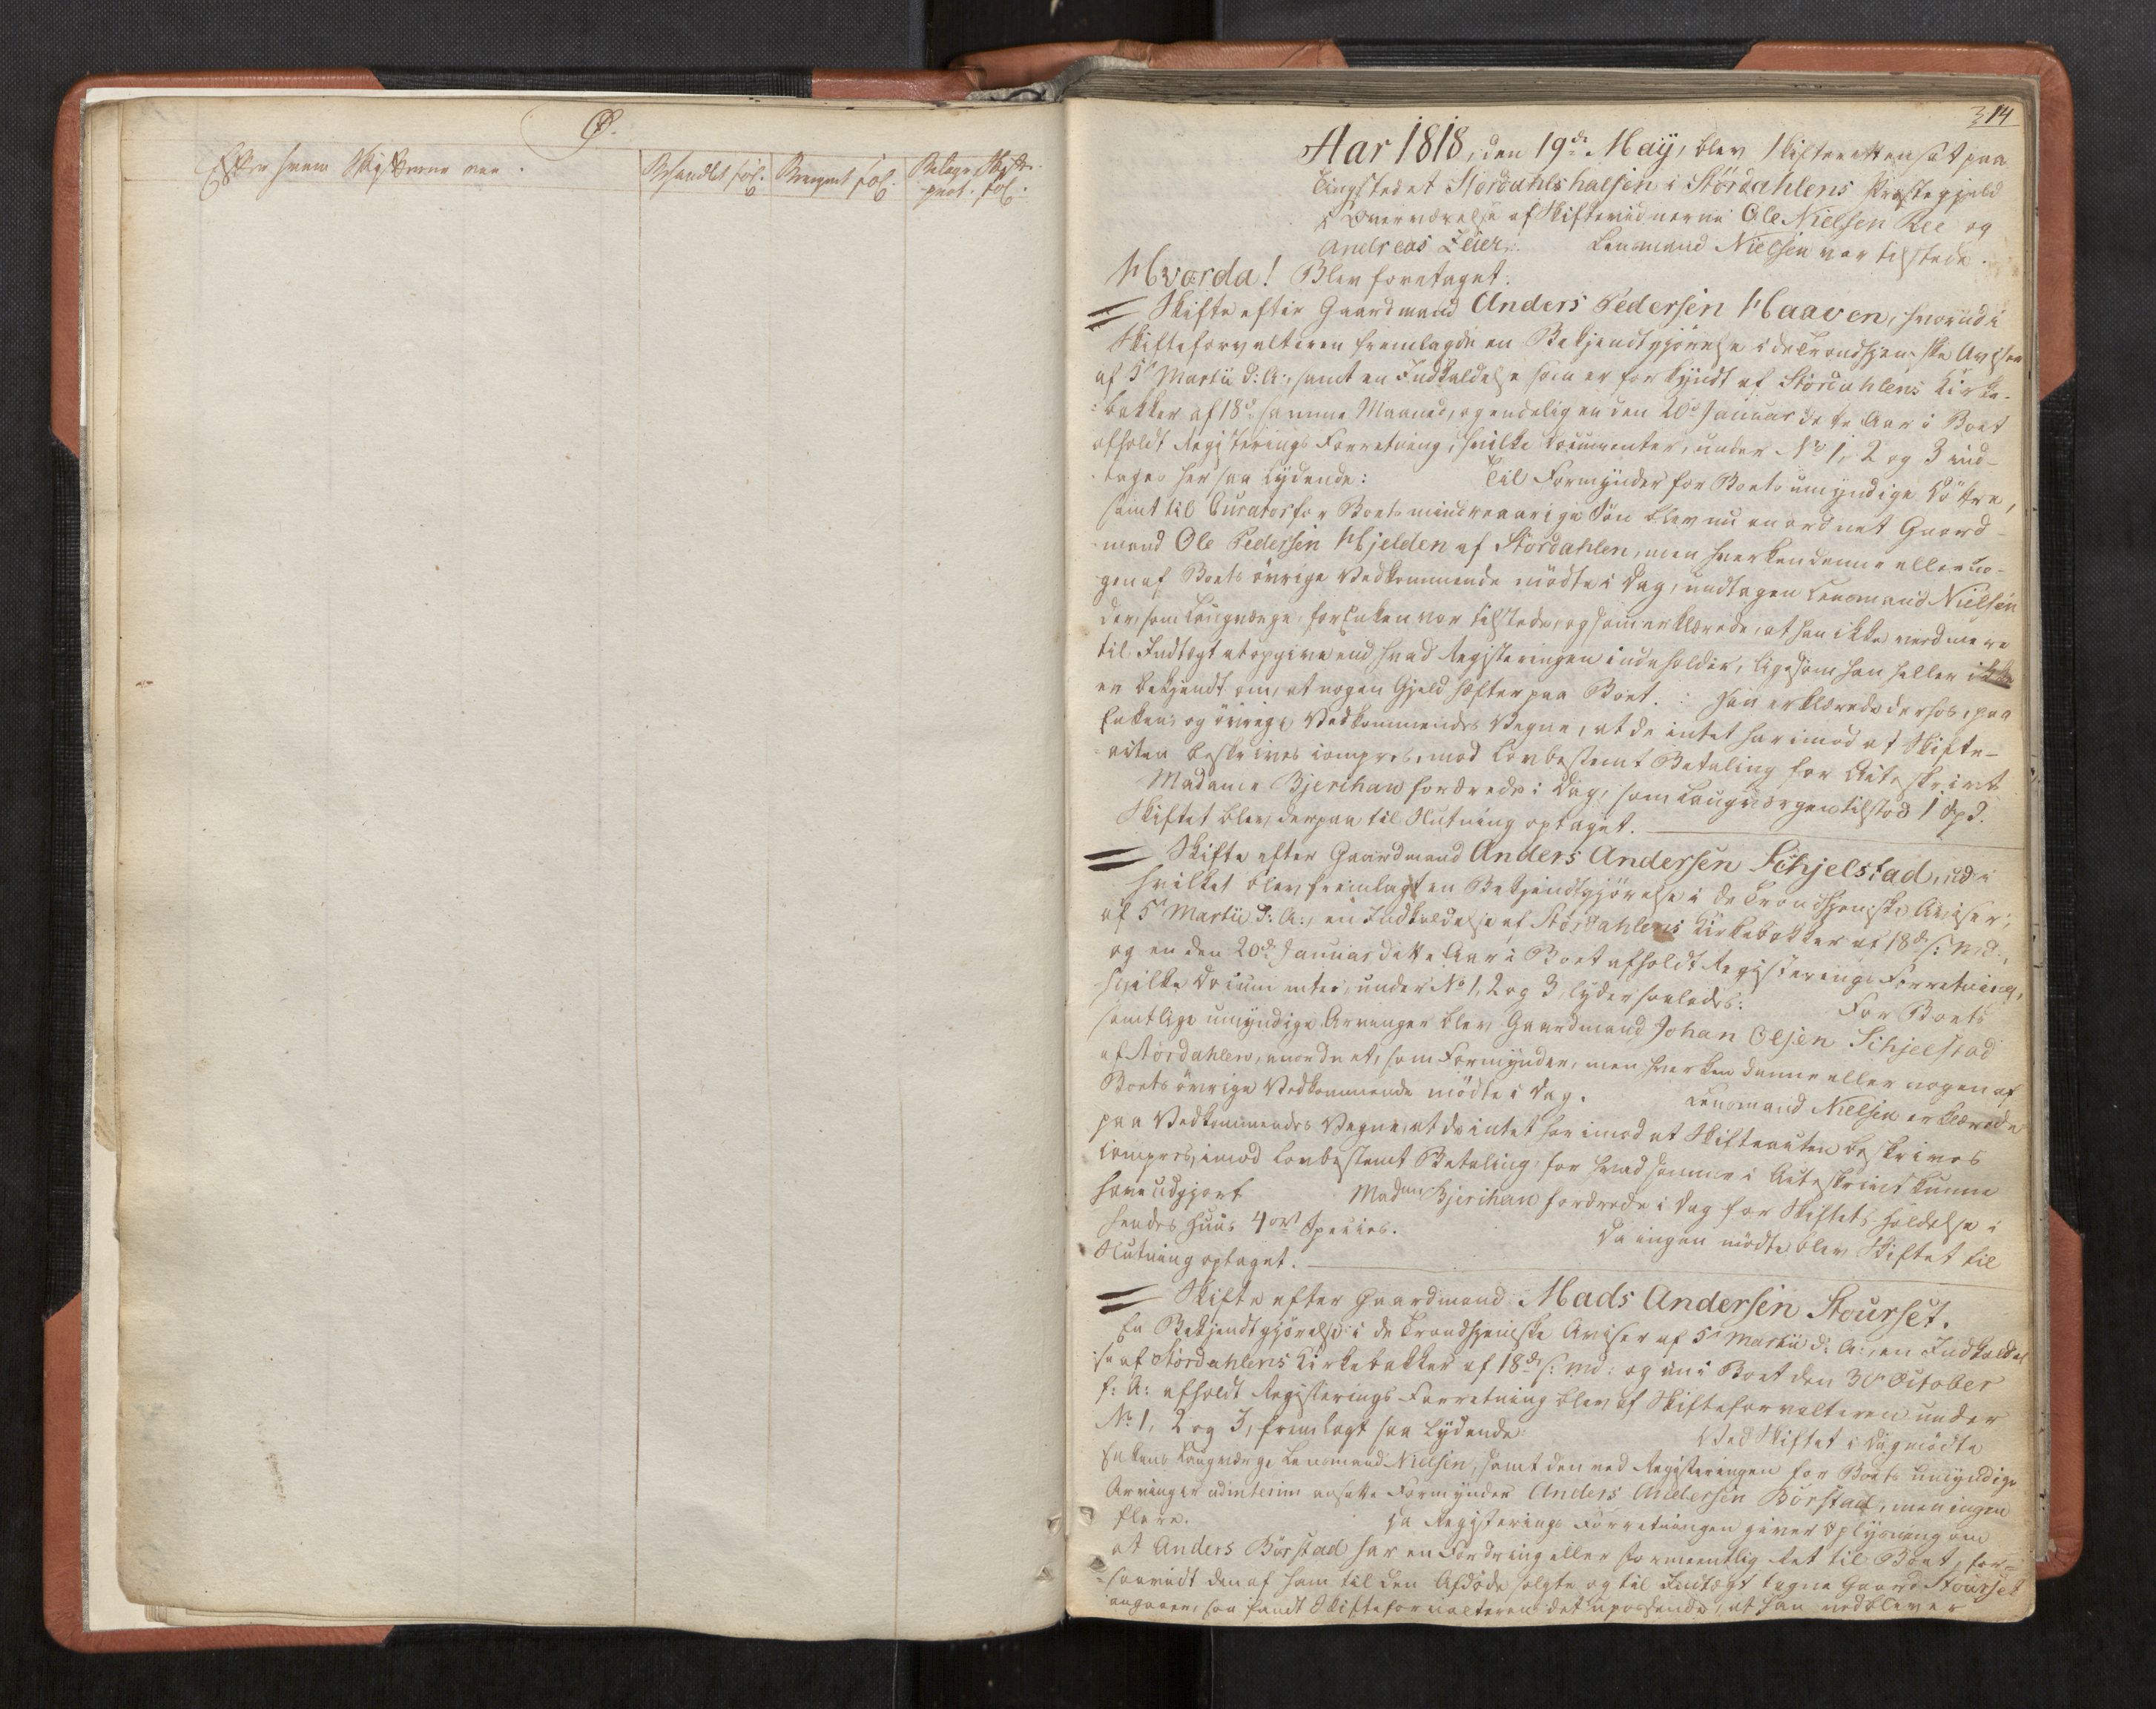 Ø.
Efter hvem Skifterne ere.
Behandlet fol:
Beregnet fol.
Bilage Skifte-
prot. fol.
314
Aar 1818, den 19de Maÿ, blev Skifteretten sat paa
Tingstedet Stördahlshalsen i Stördahlens Præstegjeld
i Overværelse af Skiftevidnerne Ole Nielsen Ree og
Andreas Leier. Lensmand Nielsen var tilstede.
Hvorda! Blev foretaget:
Skifte efter Gaardmand Anders Pedersen Haaven, hvorudi
Skifteforvalteren fremlagde en Bekjendtgjörelse i de Trondhjemske Aviser
af 5te Martii d: A:, samt en Indkaldelse som er forkÿndt af Stördahlens Kirke-
bakker af 18de samme Maaned, og endelig en den 20de Januar dette Aar i Boet
afholdt Registrerings Forretning, hvilke Documenter, under No 1, 2 og 3 ind-
tages her saa lÿdende: Til Formÿnder for Boets umÿndige Döttre,
samt til Curator for Boets mindreaarige Sön blev nu anordnet Gaard-
mand Ole Pedersen Hjelden af Stördahlen, men hverken denne eller no-
gen af Boets övrige Vedkommende mödte i Dag, undtagen Lensmand Nielsen
der, som Laugværge for Enken var tilstede, og som erklærede, at han ikke veed mere
til Indtægt at opgive end hvad Registeringen indeholder, ligesom han heller ikke
er bekjendt om, at nogen Gjeld hæfter paa Boet. Han erklærede derhos, paa
Enkens og övrige Vedkommendes Vegne, at de intet har imod at Skifte-
acten beskrives compres, mod lovbestemt Betaling for Actskrivt
Madame Bjerihan fordrede i Dag, som Laugværgen tilstod 1 Spd.
Skiftet blev derpaa til Slutning optaget.
Skifte efter Gaardmand Anders Andersen Schjelstad, udi
hvilket blev fremlagt en Bekjendtgjörelse i de Trondhjemske Aviser,
af 5te Martii d: A:, en Indkaldelse af Stördahlens Kirkebakker af 18de s: Md:,
og en den 20de Januar dette Aar i Boet afholdt Registerings Forretning,
hvilke Documenter, under No 1, 2 og 3, lÿder saaledes: For Boets
samtlige umÿndige Arvinger blev Gaardmand Johan Olsen Schjelstad
af Stördahlen, anordnet, som Formÿnder, men hverken denne eller nogen af
Boets övrige Vedkommende mödte i Dag. Lensmand Nielsen erklærede
paa Vedkommendes Vegne, at de intet har imod at Skifteacten beskrives
compres, imod lovbestemt Betaling for hvad samme i Acteskrivt kunne
have udgjort Madme Bjerihan fordrede i Dag for Skiftets holdelse i
hendes Huus 4 ort Species. Da ingen mödte blev Skiftet til
Slutning optaget.
Skifte efter Gaardmand Mads Andersen Stourset.
En Bekjendtgjörelse i de Trondhjemske Aviser af 5te Martii d: A:, en Indkaldel-
se af Stördahlens Kirkebakker af 18de s: Md: og en i Boet den 30te October
f: A: afholdt Registerings Forretning blev af Skifteforvalteren under
No 1, 2 og 3, fremlagt saa lÿdende: Ved Skiftet i Dag mödte
Enkens Laugværge Lensmand Nielsen, samt den ved Registeringen for Boets umÿndige
Arvinger ad interim ansatte Formÿnder Anders Andersen Börstad, men ingen
flere. Da Registerings Forretningen giver Oplÿsning om
at Anders Börstad har en Fordring eller formeentlig Ret til Boet, for-
saavidt den af ham til den Afdöde solgte og til Indtægt tagne Gaard Stourset
angaaer, saa fandt Skifteforvalteren det upassende, at han vedbliver